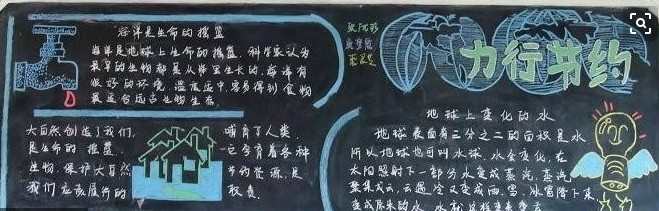 海洋是生命的摇篮
海洋是地球上生命的摇篮。科学家认为
最早的生物都是从海里生长的。海洋有
很好的环境,温度适中,容易得到食物
最适合远古生物生态。
大自然创造了我们,
是生命的摇篮
生物,保护大自然
我们应该履行的
哺育了人类
它孕育着各种
的资源,是
权责。
力行节约
地球上变化的水
地球表面有三分之二的面积是水
所以地球也可叫水球,水会变化,在
太阳照射下一部分水变成蒸汽,蒸汽
聚集成云,云遇冷又变成雨、雪、冰雹降下来
变成原来的水